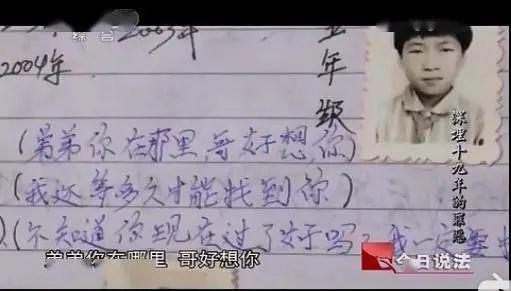 综合
2003年
2004年
五年级
(弟弟你在那里哥好想你)
(我还等多久才能找到你)
(不知道你现在过了好吗?我一定要
深埋十九年的罪恶
弟弟你在哪里 哥好想你
今日说法